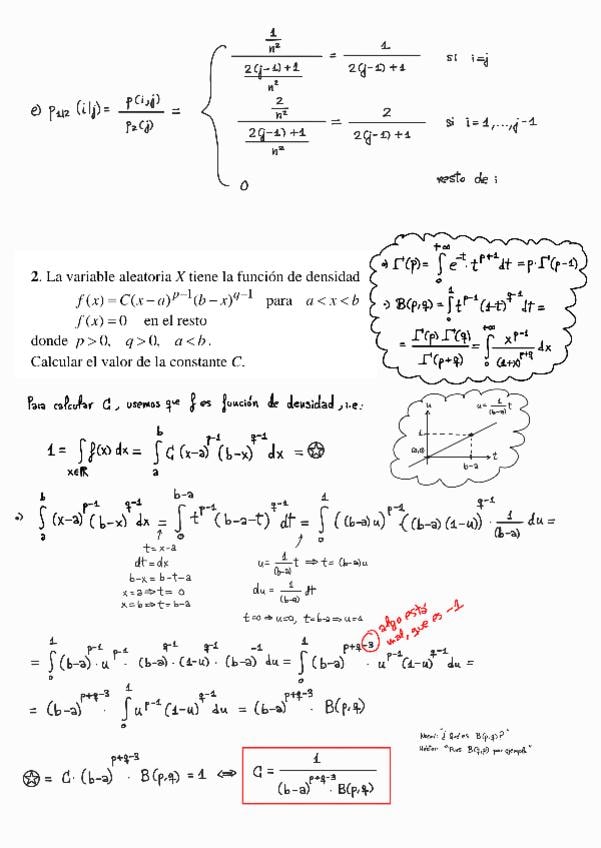 e) p₁/₂ (i|j) = p(i,j) / p₂(j) = { (1/n²) / ((2(j-1)+1)/n²) = 1 / (2(j-1)+1) si i=j
(2/n²) / ((2(j-1)+1)/n²) = 2 / (2(j-1)+1) si i=1,...,j-1
0 resto de i
2. La variable aleatoria X tiene la función de densidad
f(x) = C(x-a)^{p-1}(b-x)^{q-1} para a < x < b
f(x) = 0 en el resto
donde p > 0, q > 0, a < b.
Calcular el valor de la constante C.
·) Γ(p) = ∫₀^{+∞} e^{-t}·t^{p+1} dt = p·Γ(p-1)
·) B(p,q) = ∫₀^1 t^{p-1}(1-t)^{q-1} dt =
= Γ(p)Γ(q) / Γ(p+q) = ∫₀^{+∞} x^{p-1} / (1+x)^{p+q} dx
Para calcular C, usemos que f es función de densidad, i.e:
1 = ∫_{x∈ℝ} f(x) dx = ∫_a^b C(x-a)^{p-1}(b-x)^{q-1} dx = ☆
u
u = 1/(b-a) t
1
(0,0)
b-a
t
·) ∫_a^b (x-a)^{p-1}(b-x)^{q-1} dx = ∫₀^{b-a} t^{p-1}(b-a-t)^{q-1} dt = ∫₀^1 ((b-a)u)^{p-1}·((b-a)(1-u))^{q-1}·1/(b-a) du =
t = x-a
dt = dx
b-x = b-t-a
x=a ⇒ t= 0
x=b ⇒ t=b-a
u = 1/(b-a) t ⇒ t = (b-a)u
du = 1/(b-a) dt
t=0 ⇒ u=0, t=b-a ⇒ u=1
algo está
mal, que es -1
= ∫₀^1 (b-a)^{p-1}·u^{p-1}·(b-a)^{q-1}·(1-u)^{q-1}·(b-a)^{-1} du = ∫₀^1 (b-a)^{p+q-3}·u^{p-1}(1-u)^{q-1} du =
= (b-a)^{p+q-3}·∫₀^1 u^{p-1}(1-u)^{q-1} du = (b-a)^{p+q-3}·B(p,q)
"¿Qué es B(p,q)?"
"Pues B(p,q) por ejemplo"
☆ = C·(b-a)^{p+q-3}·B(p,q) = 1 ⇔ C = 1 / ((b-a)^{p+q-3}·B(p,q))